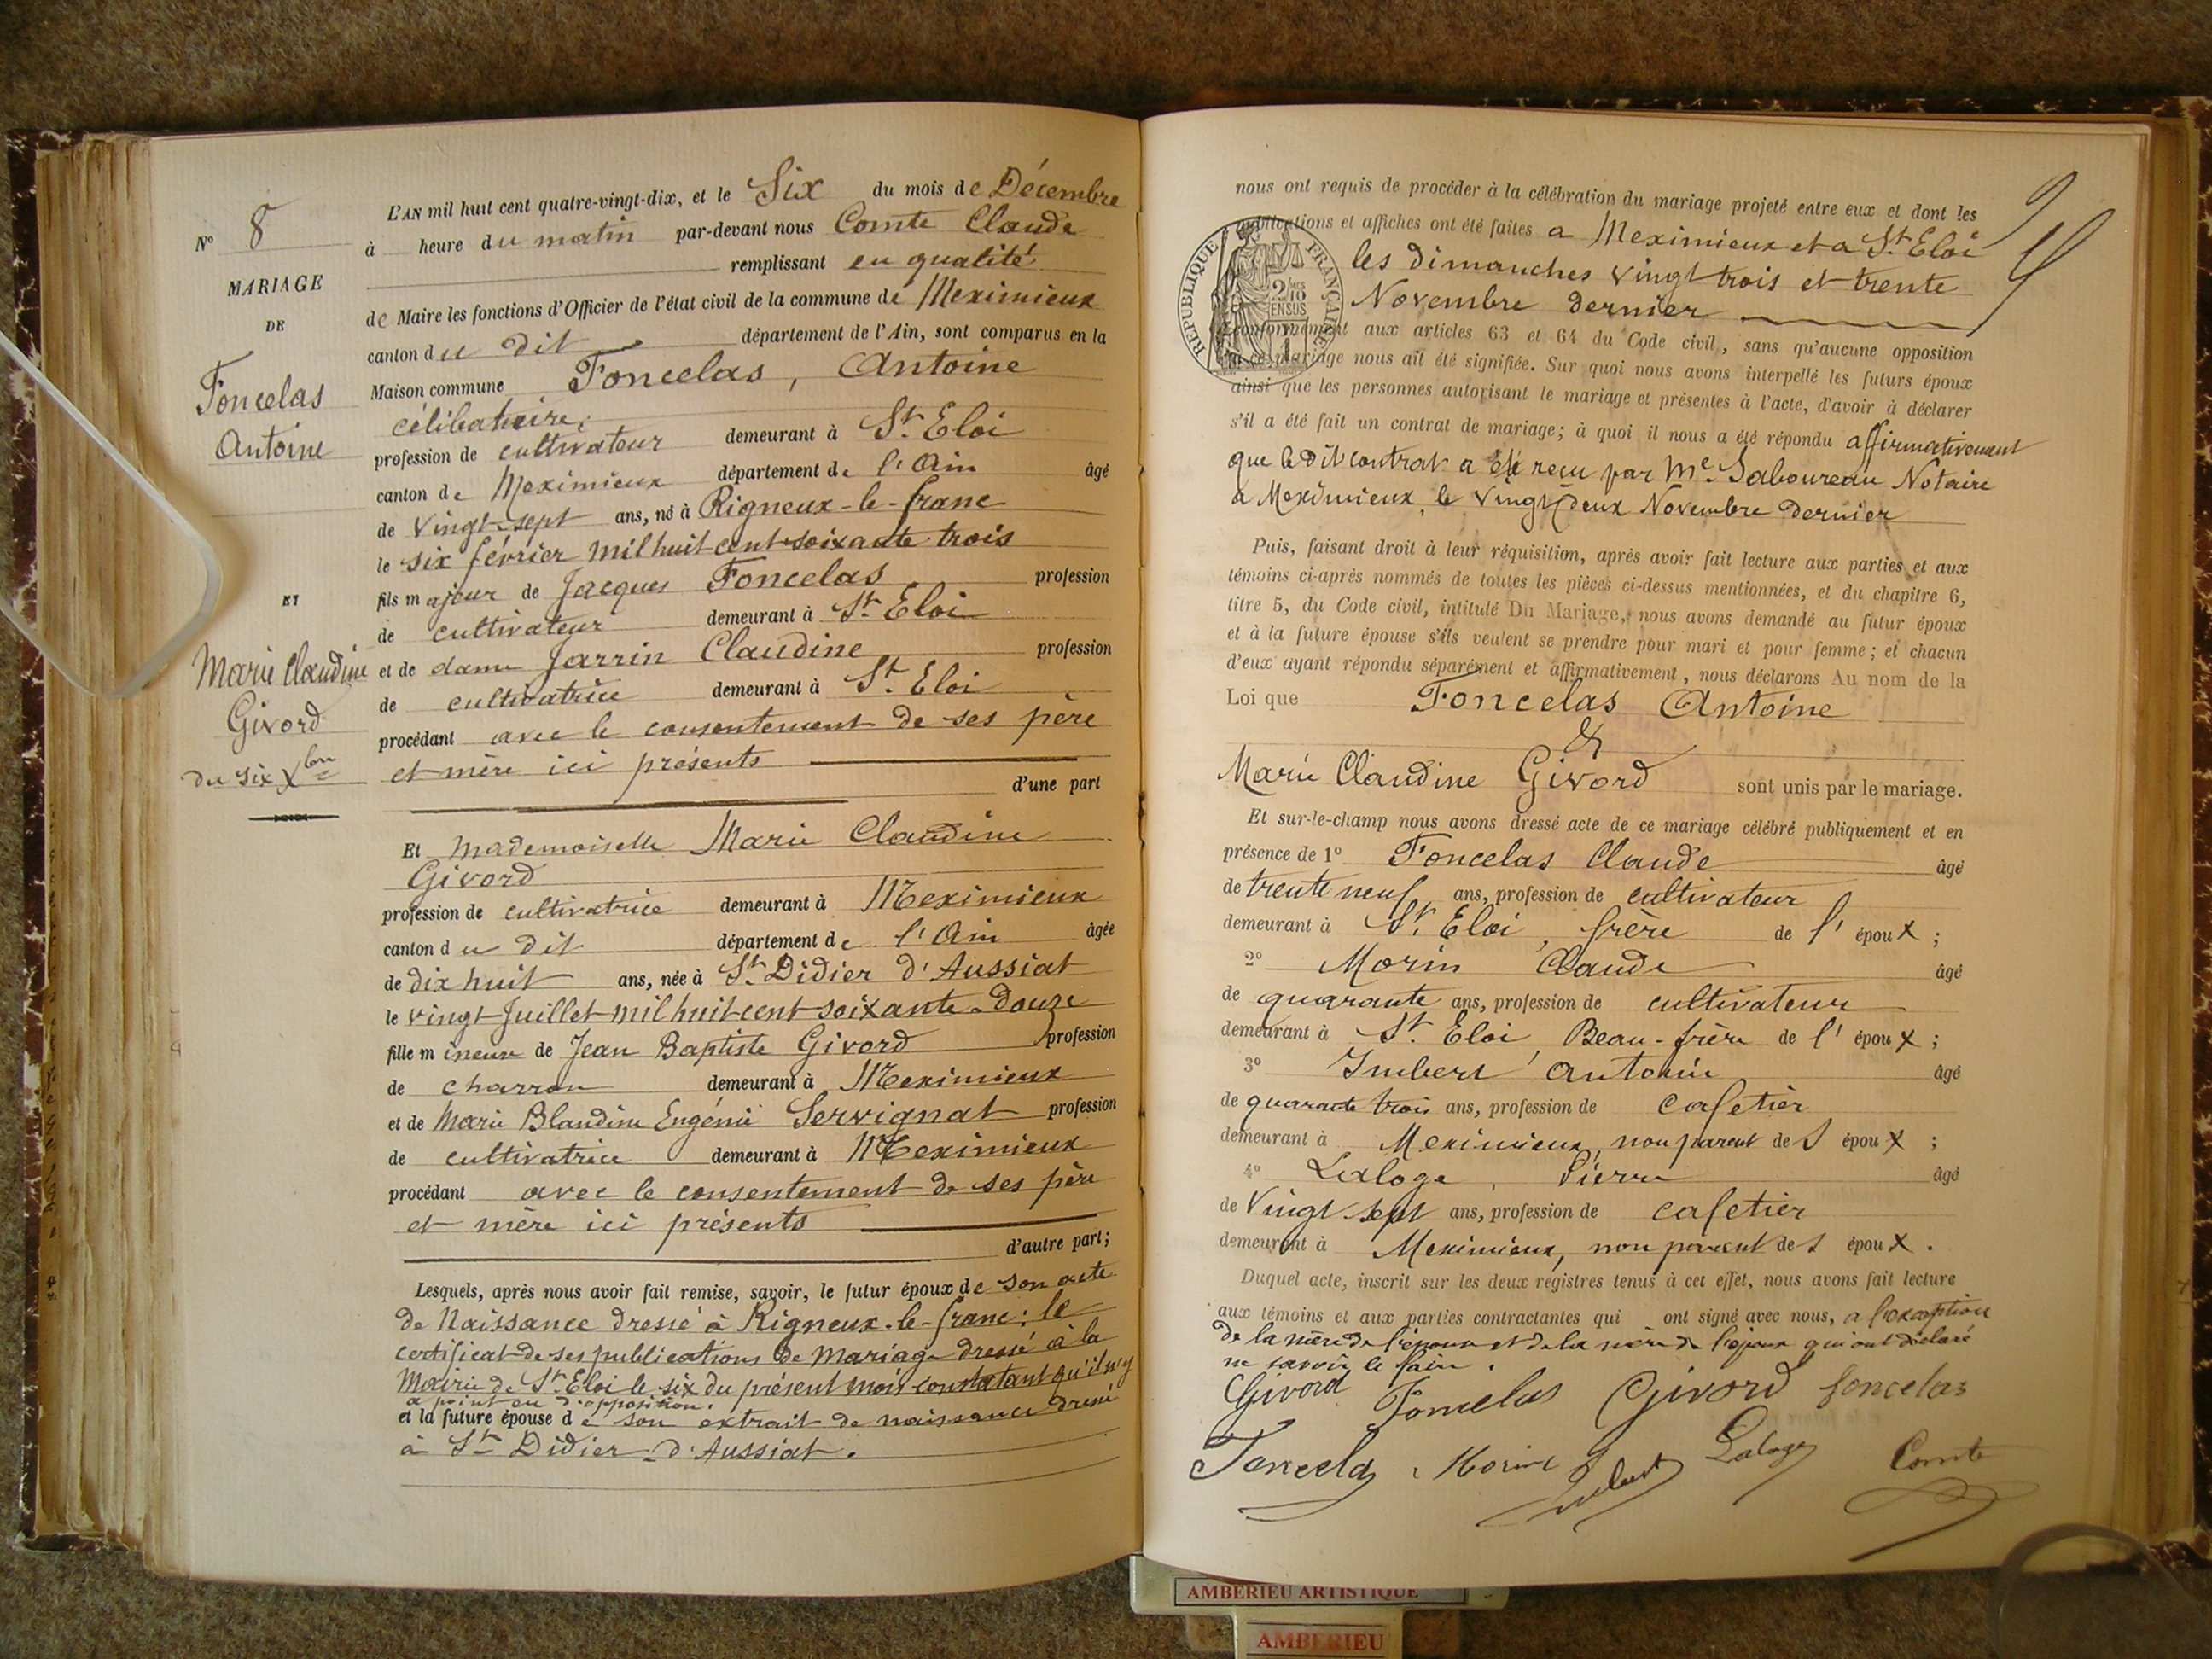 N° 8
MARIAGE
DE
Foncelas
Antoine
ET
Marie Claudine
Givord
du six Xbre
L'AN mil huit cent quatre-vingt-dix, et le Six du mois de Décembre
à heure du matin par-devant nous Comte Claude
remplissant en qualité
de Maire les fonctions d'Officier de l'état civil de la commune de Meximieux
canton du dit département de l'Ain, sont comparus en la
Maison commune Foncelas, Antoine
célibataire,
profession de cultivateur demeurant à St. Eloi
canton de Meximieux département de l'Ain âgé
de Vingt-sept ans, né à Rigneux-le-franc
le six février mil huit cent soixante trois
fils majeur de Jacques Foncelas profession
de cultivateur demeurant à St. Eloi
et de dame Jarrin Claudine profession
de cultivatrice demeurant à St. Eloi
procédant avec le consentement de ses père
et mère ici présents
d'une part
Et Mademoiselle Marie Claudine
Givord
profession de cultivatrice demeurant à Meximieux
canton du dit département de l'Ain âgée
de dix huit ans, née à St. Didier d'Aussiat
le vingt Juillet mil huit cent soixante-douze
fille mineure de Jean Baptiste Givord profession
de charron demeurant à Meximieux
et de Marie Blandine Eugénie Servignat profession
de cultivatrice demeurant à Meximieux
procédant avec le consentement de ses père
et mère ici présents
d'autre part;
Lesquels, après nous avoir fait remise, savoir, le futur époux de son acte
de Naissance dressé à Rigneux-le-franc; le
certificat de ses publications de Mariage dressé à la
Mairie de St. Eloi le six du présent mois constatant qu'il n'y
a point eu d'opposition.
et la future épouse de son extrait de naissance dressé
à St Didier-d'Aussiat.
nous ont requis de procéder à la célébration du mariage projeté entre eux et dont les
publications et affiches ont été faites a Meximieux et a St. Eloi
les dimanches vingt trois et trente
Novembre dernier
RÉPUBLIQUE FRANÇAISE
2/10 EN SUS
conformément aux articles 63 et 64 du Code civil, sans qu'aucune opposition
au ce mariage nous ait été signifiée. Sur quoi nous avons interpellé les futurs époux
ainsi que les personnes autorisant le mariage et présentes à l'acte, d'avoir à déclarer
s'il a été fait un contrat de mariage; à quoi il nous a été répondu affirmativement
que le dit contrat a été reçu par Me. Saboureau Notaire
à Meximieux, le vingt deux Novembre dernier
Puis, faisant droit à leur réquisition, après avoir fait lecture aux parties et aux
témoins ci-après nommés de toutes les pièces ci-dessus mentionnées, et du chapitre 6,
titre 5, du Code civil, intitulé Du Mariage, nous avons demandé au futur époux
et à la future épouse s'ils veulent se prendre pour mari et pour femme; et chacun
d'eux ayant répondu séparément et affirmativement, nous déclarons Au nom de la
Loi que Foncelas Antoine
&
Marie Claudine Givord sont unis par le mariage.
Et sur-le-champ nous avons dressé acte de ce mariage célébré publiquement et en
présence de 1° Foncelas Claude âgé
de trente neuf ans, profession de cultivateur
demeurant à St. Eloi, frère de l'époux;
2° Morin Claude âgé
de quarante ans, profession de cultivateur
demeurant à St. Eloi Beau-frère de l'époux;
3° Imbert Antoine âgé
de quarante trois ans, profession de cafetier
demeurant à Meximieux, non parent des époux;
4° Laloge, Pierre âgé
de Vingt sept ans, profession de cafetier
demeurant à Meximieux, non parent des époux.
Duquel acte, inscrit sur les deux registres tenus à cet effet, nous avons fait lecture
aux témoins et aux parties contractantes qui ont signé avec nous, a l'exception
de la mère de l'époux et de la mère de l'épouse qui ont déclaré
ne savoir le faire.
Givord Foncelas Givord foncelas
Foncelas Morin Imbert Laloge Comte
AMBERIEU ARTISTIQUE
AMBERIEU